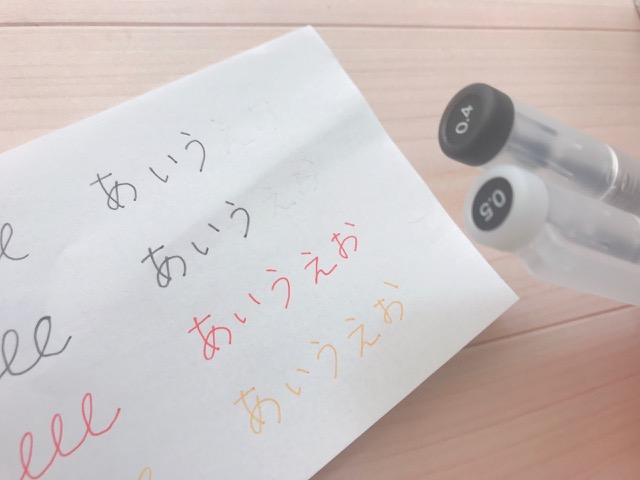 あいう
あいう
あいうえお
あいうえお
0.4
0.5